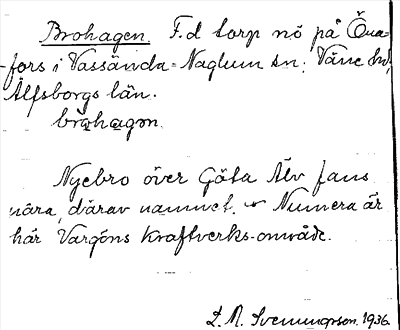 Brohagen. F.d torp nö på Öna-
fors i Vassända-Naglum sn; Väne hd,
Älfsborgs län.
brohagen.
Nyebro över Göta Älv fans
nära, därav namnet. Numera är
här Vargöns kraftverks-område.
L. N. Svenungsson. 1936.